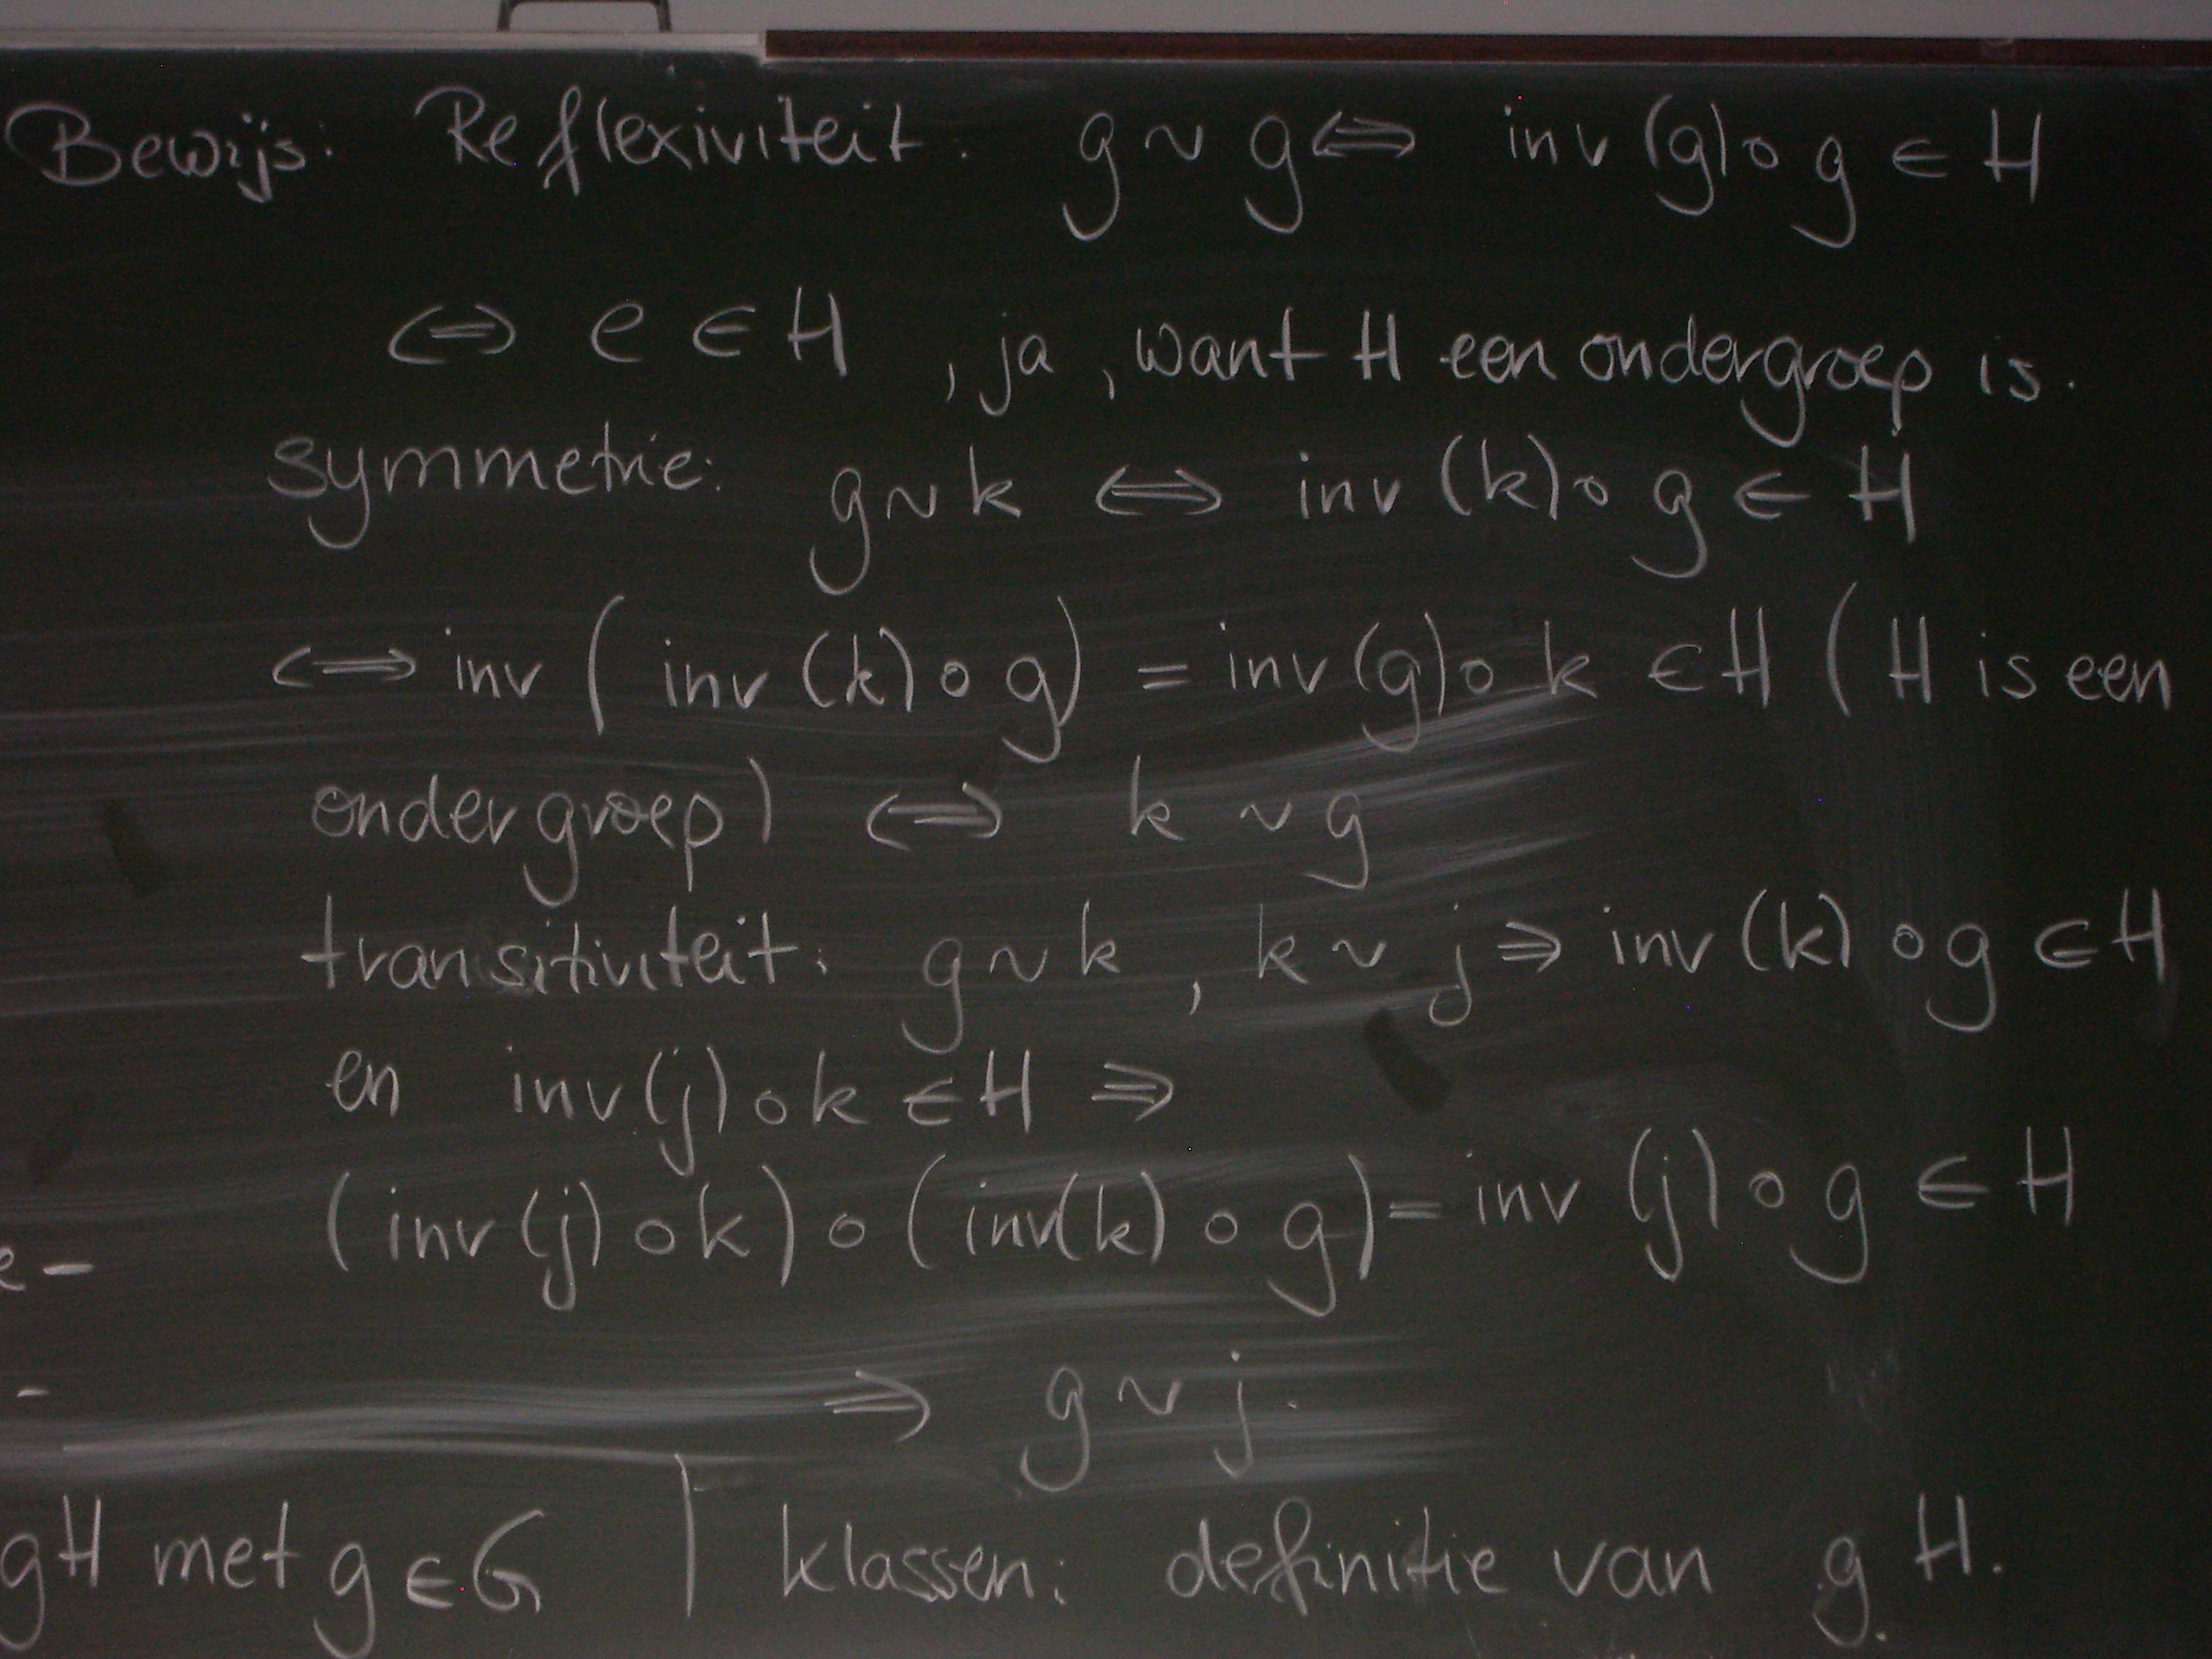 Bewijs: Reflexiviteit. g ~ g ⇔ inv (g) ∘ g ∈ H
⇔ e ∈ H , ja , want H een ondergroep is.
symmetrie: g ~ k ⇔ inv (k) ∘ g ∈ H
⇔ inv ( inv (k) ∘ g) = inv (g) ∘ k ∈ H ( H is een
ondergroep) ⇔ k ~ g
transitiviteit: g ~ k , k ~ j ⇒ inv (k) ∘ g ∈ H
en inv (j) ∘ k ∈ H ⇒
( inv (j) ∘ k ) ∘ ( inv(k) ∘ g ) = inv (j) ∘ g ∈ H
e -
-
⇒ g ~ j.
gH met g ∈ G | klassen: definitie van g H.